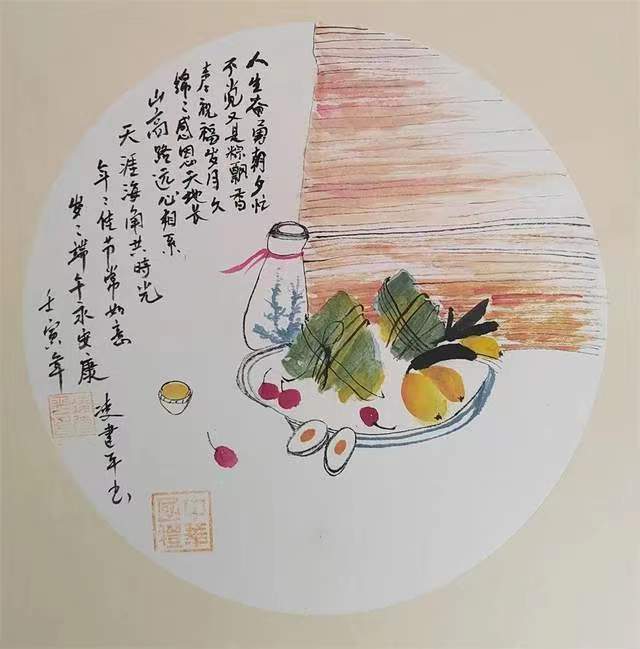 人生奋勇朝夕忙
不觉又是粽飘香
奉祝福岁月久
绵〻感恩天地长
山高路远心相系
天涯海角共時光
年〻佳节常如意
岁〻端午永安康
壬寅年
凌建平书
中华
国礼